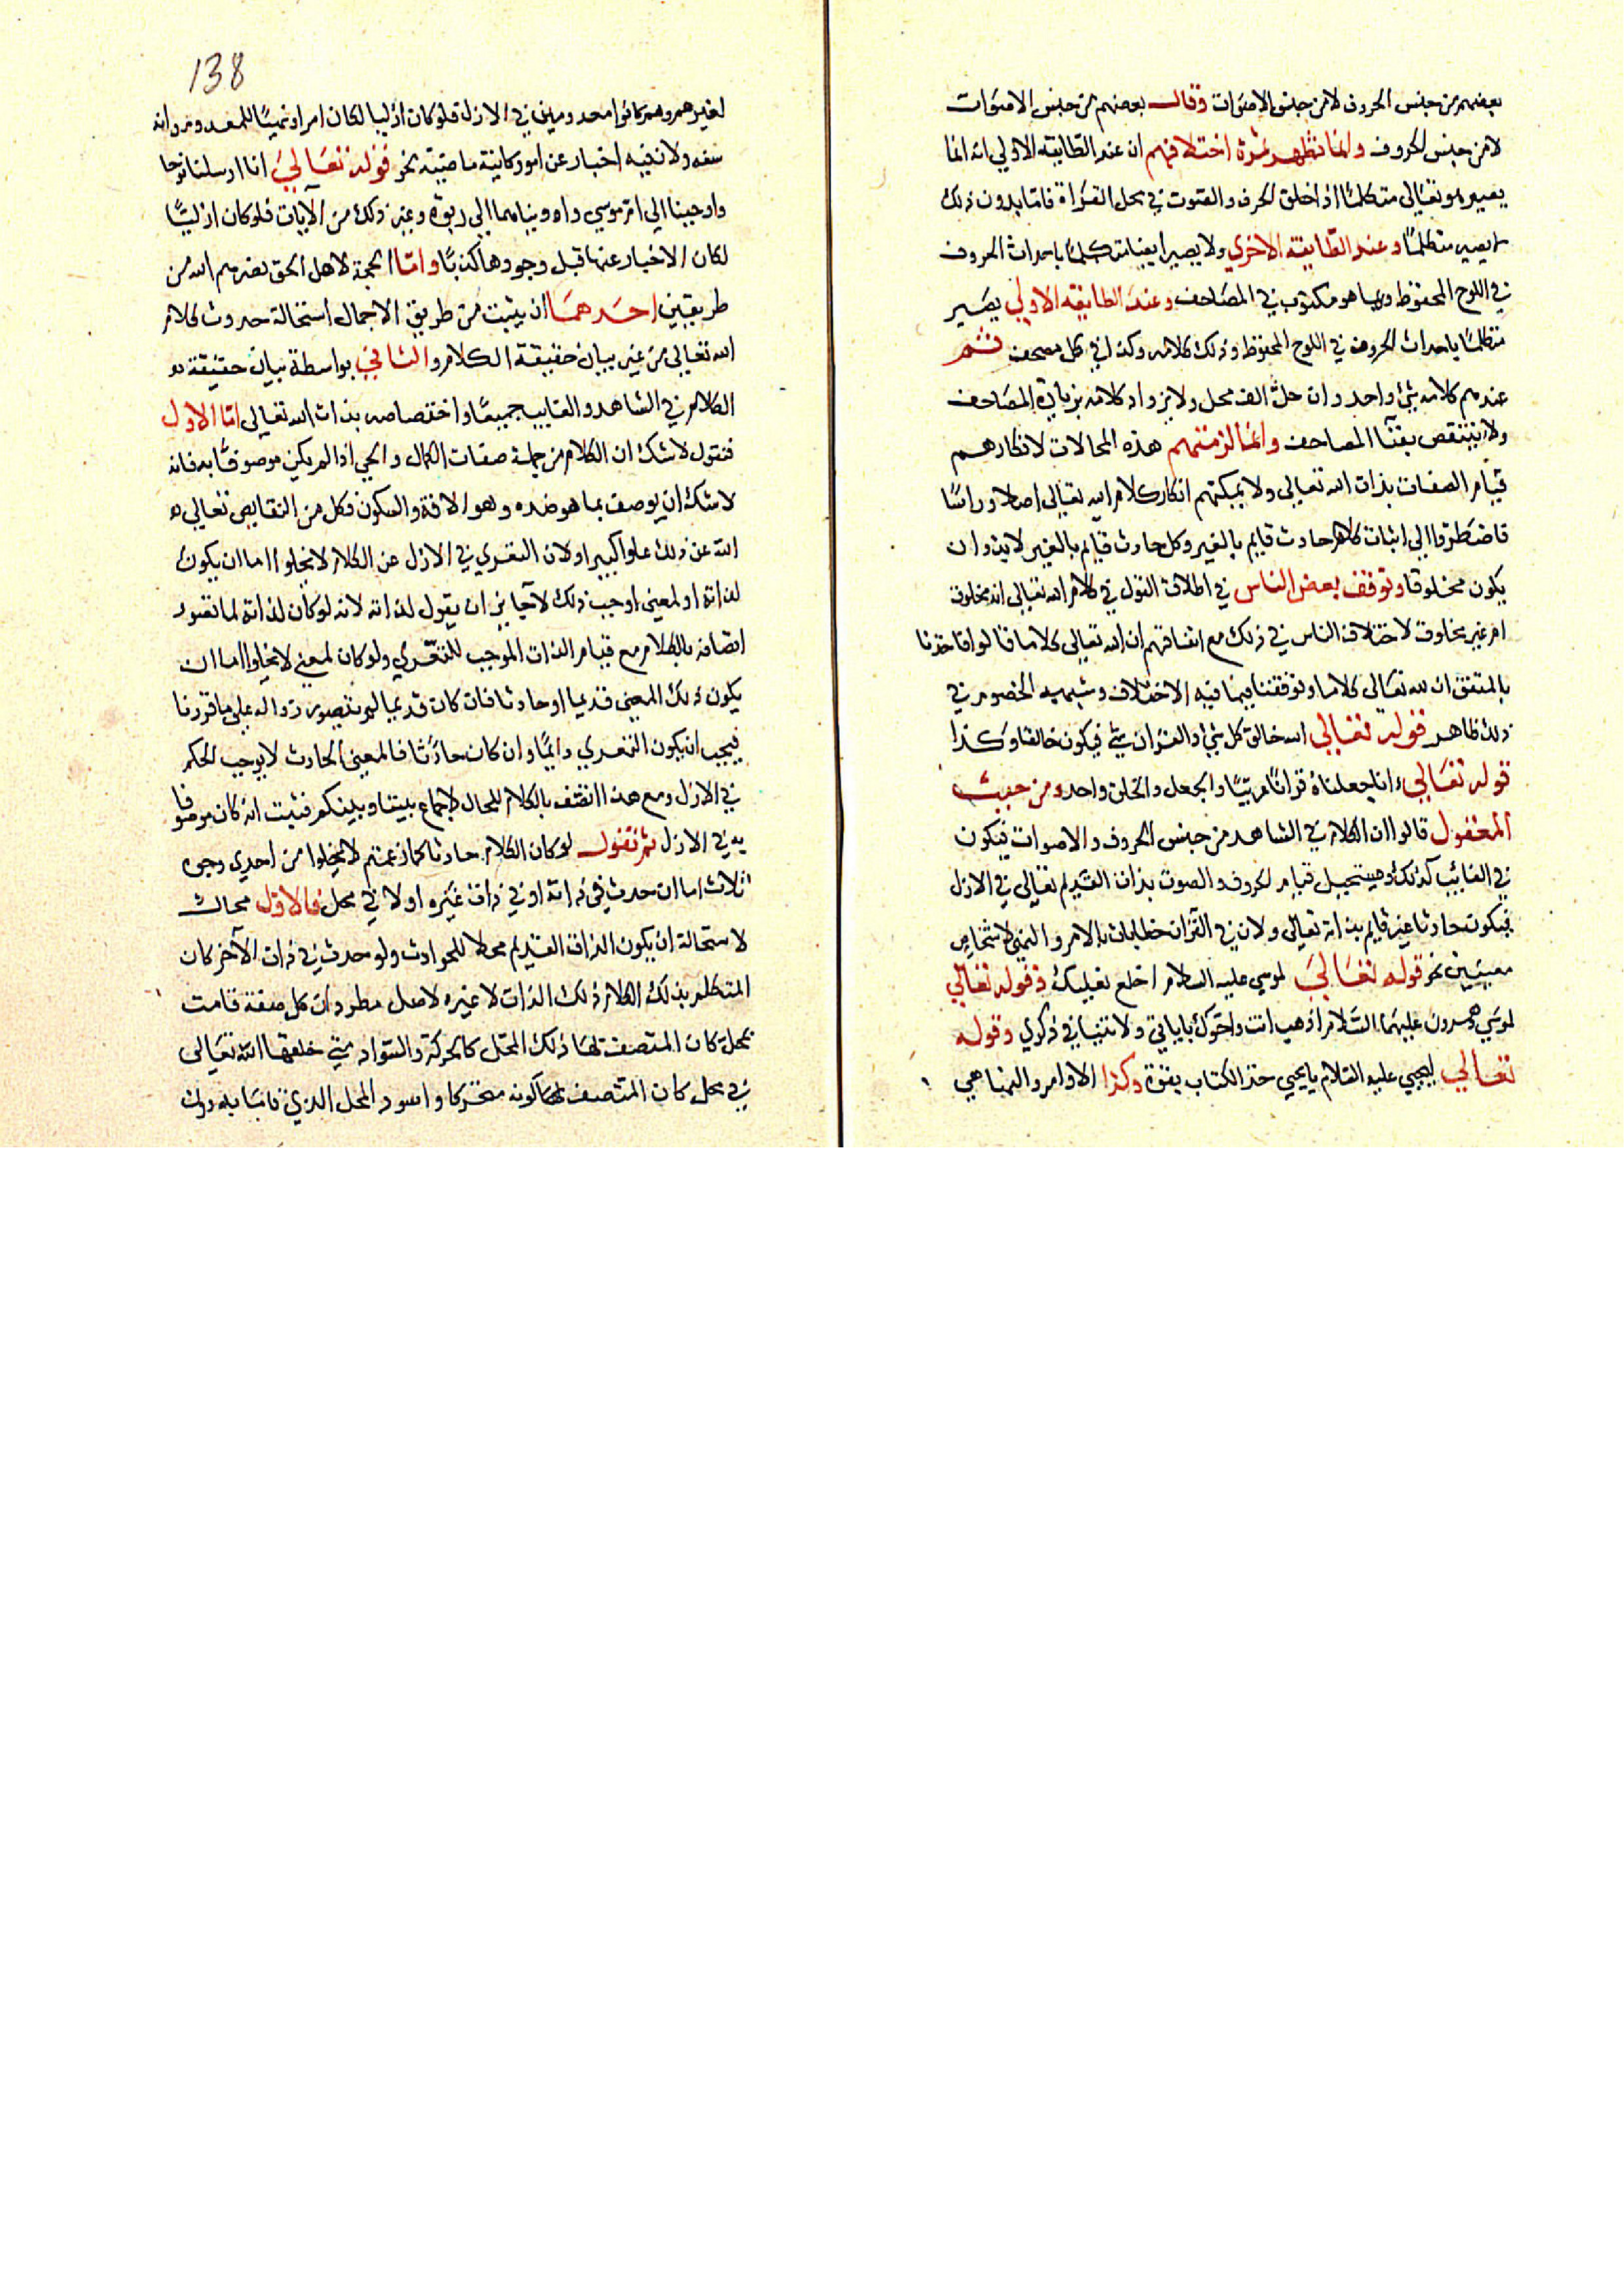 بعضهم من جنس الحروف لا من جنس الاصوات وقال بعضهم من جنس الاصوات
لا من جنس الحروف وانما تظهر ثمرة اختلافهم ان عند الطايفة الاولي انه انما
يصير هو تعالى متكلمًا اذا خلق الحرف والصوت في محل القراة فاما بدون ذلك
لا يصير متكلمًا وعند الطايفة الاخري ولا يصير ايضا متكلمًا باحداث الحروف
في اللوح المحفوظ وبما هو مكتوب في المصاحف وعند الطايفة الاولي يصير
متكلمًا باحداث الحروف في اللوح المحفوظ وذلك كلامه وكذا في كل مصحف ثم
عندهم كلامه شئ واحد وان حل الف محل ولا يزداد كلامه بزيادة المصاحف
ولا ينتقص بفنا المصاحف وانما لزمتهم هذه المحالات لانكارهم
قيام الصفات بذات الله تعالى ولا يمكنهم انكار كلام الله تعالى اصلا وراسًا
فاضطروا الى اثبات كلام حادث قايم بالغير وكل حادث قايم بالغير لا بد وان
يكون مخلوقا وتوقف بعض الناس في اطلاق القول في كلام الله تعالى انه مخلوق
ام غير مخلوق لاختلاف الناس في ذلك مع اتفاقهم ان لله تعالى كلاما قالوا فاخذنا
بالمتفق ان لله تعالى كلاما وتوقفنا فيما فيه الاختلاف وشبهة الخصوم في
ذلك ظاهر قوله تعالي الله خالق كل شي والقران شئ فيكون خالقا وكذا
قوله تعالي انا جعلناه قرانًا عربيًا والجعل والخلق واحد ومن حيث
المعقول قالوا ان الكلام في الشاهد من جنس الحروف والاصوات فيكون
في الغائب كذلك ويستحيل قيام الحروف والصوت بذات القديم تعالى في الازل
فيكون حادثا غير قايم بذاته تعالى ولان في القران خطابات بالامر والنهي لاشخاص
معينين نحو قوله تعالي لموسي عليه السلام اخلع نعليك وقوله تعالي
لموسي وهرون عليهما السلام اذهب انت واخوك باياتي ولا تنيا في ذكري وقوله
تعالي ليحيي عليه السلام يا يحيي خذ الكتاب بقوة وكذا الاوامر والنهاهي
138
لغيرهم وهم كانوا معدومين في الازل فلو كان ازليا لكان امرا ونهيًا للمعدوم وانه
سفه ولان فيه اخبار عن امور كاينة ماضية نحو قوله تعالي انا ارسلنا نوحا
واوحينا الى ام موسي واويناهما الى ربوة وغير ذلك من الآيات فلو كان ازليًا
لكان الاخبار عنها قبل وجودها كذبًا واما الحجة لاهل الحق نصرهم الله من
طريقين احدهما ان يثبت من طريق الاجمال استحالة حدوث كلام
الله تعالى من غير بيان حقيقة الكلام والثاني بواسطة بيان حقيقة
الكلام في الشاهد والغايب جميعًا واختصاصه بذات الله تعالى اما الاول
فنقول لا شك ان الكلام من جملة صفات الكمال والحي اذا لم يكن موصوفًا به فانه
لا شك ان يوصف بما هو ضده وهو الافة والسكون وكل من النقايص تعالى
الله عن ذلك علوا كبيرا ولان التعري في الازل عن الكلام لا يخلوا اما ان يكون
لذاته او لمعني اوجب ذلك لا جايز ان يقول لذاته لانه لو كان لذاته لما تصور
اتصافه بالكلام مع قيام الذات الموجب للتعري ولو كان لمعني لا يخلوا اما ان
يكون ذلك المعنى قديما او حادثا فان كان قديما لم يتصور زواله على ما قررنا
فيجب ان يكون التعري دايمًا وان كان حادثا فالمعنى الحادث لا يوجب الحكم
في الازل ومع هذا اتصف بالكلام للحال لاجماع بيننا وبينكم فثبت انه كان موصوفا
به في الازل ثم نقول لو كان الكلام حادثا كما زعمتم لا يخلوا من احدي وجوه
ثلاث اما ان حدث في ذاته او في ذات غيره او لا في محل فالاول محال
لاستحالة ان يكون الذات القديم محلا للحوادث ولو حدث في ذات الآخر كان
المتكلم بذلك الكلام ذلك الذات لا غيره لاصل مطرد ان كل صفة قامت
بمحل كان المتصف بها ذلك المحل كالحركة والسواد متي خلقها الله تعالى
في محل كان المتصف بها كونه متحركا واسود المحل الذي قاما به دون